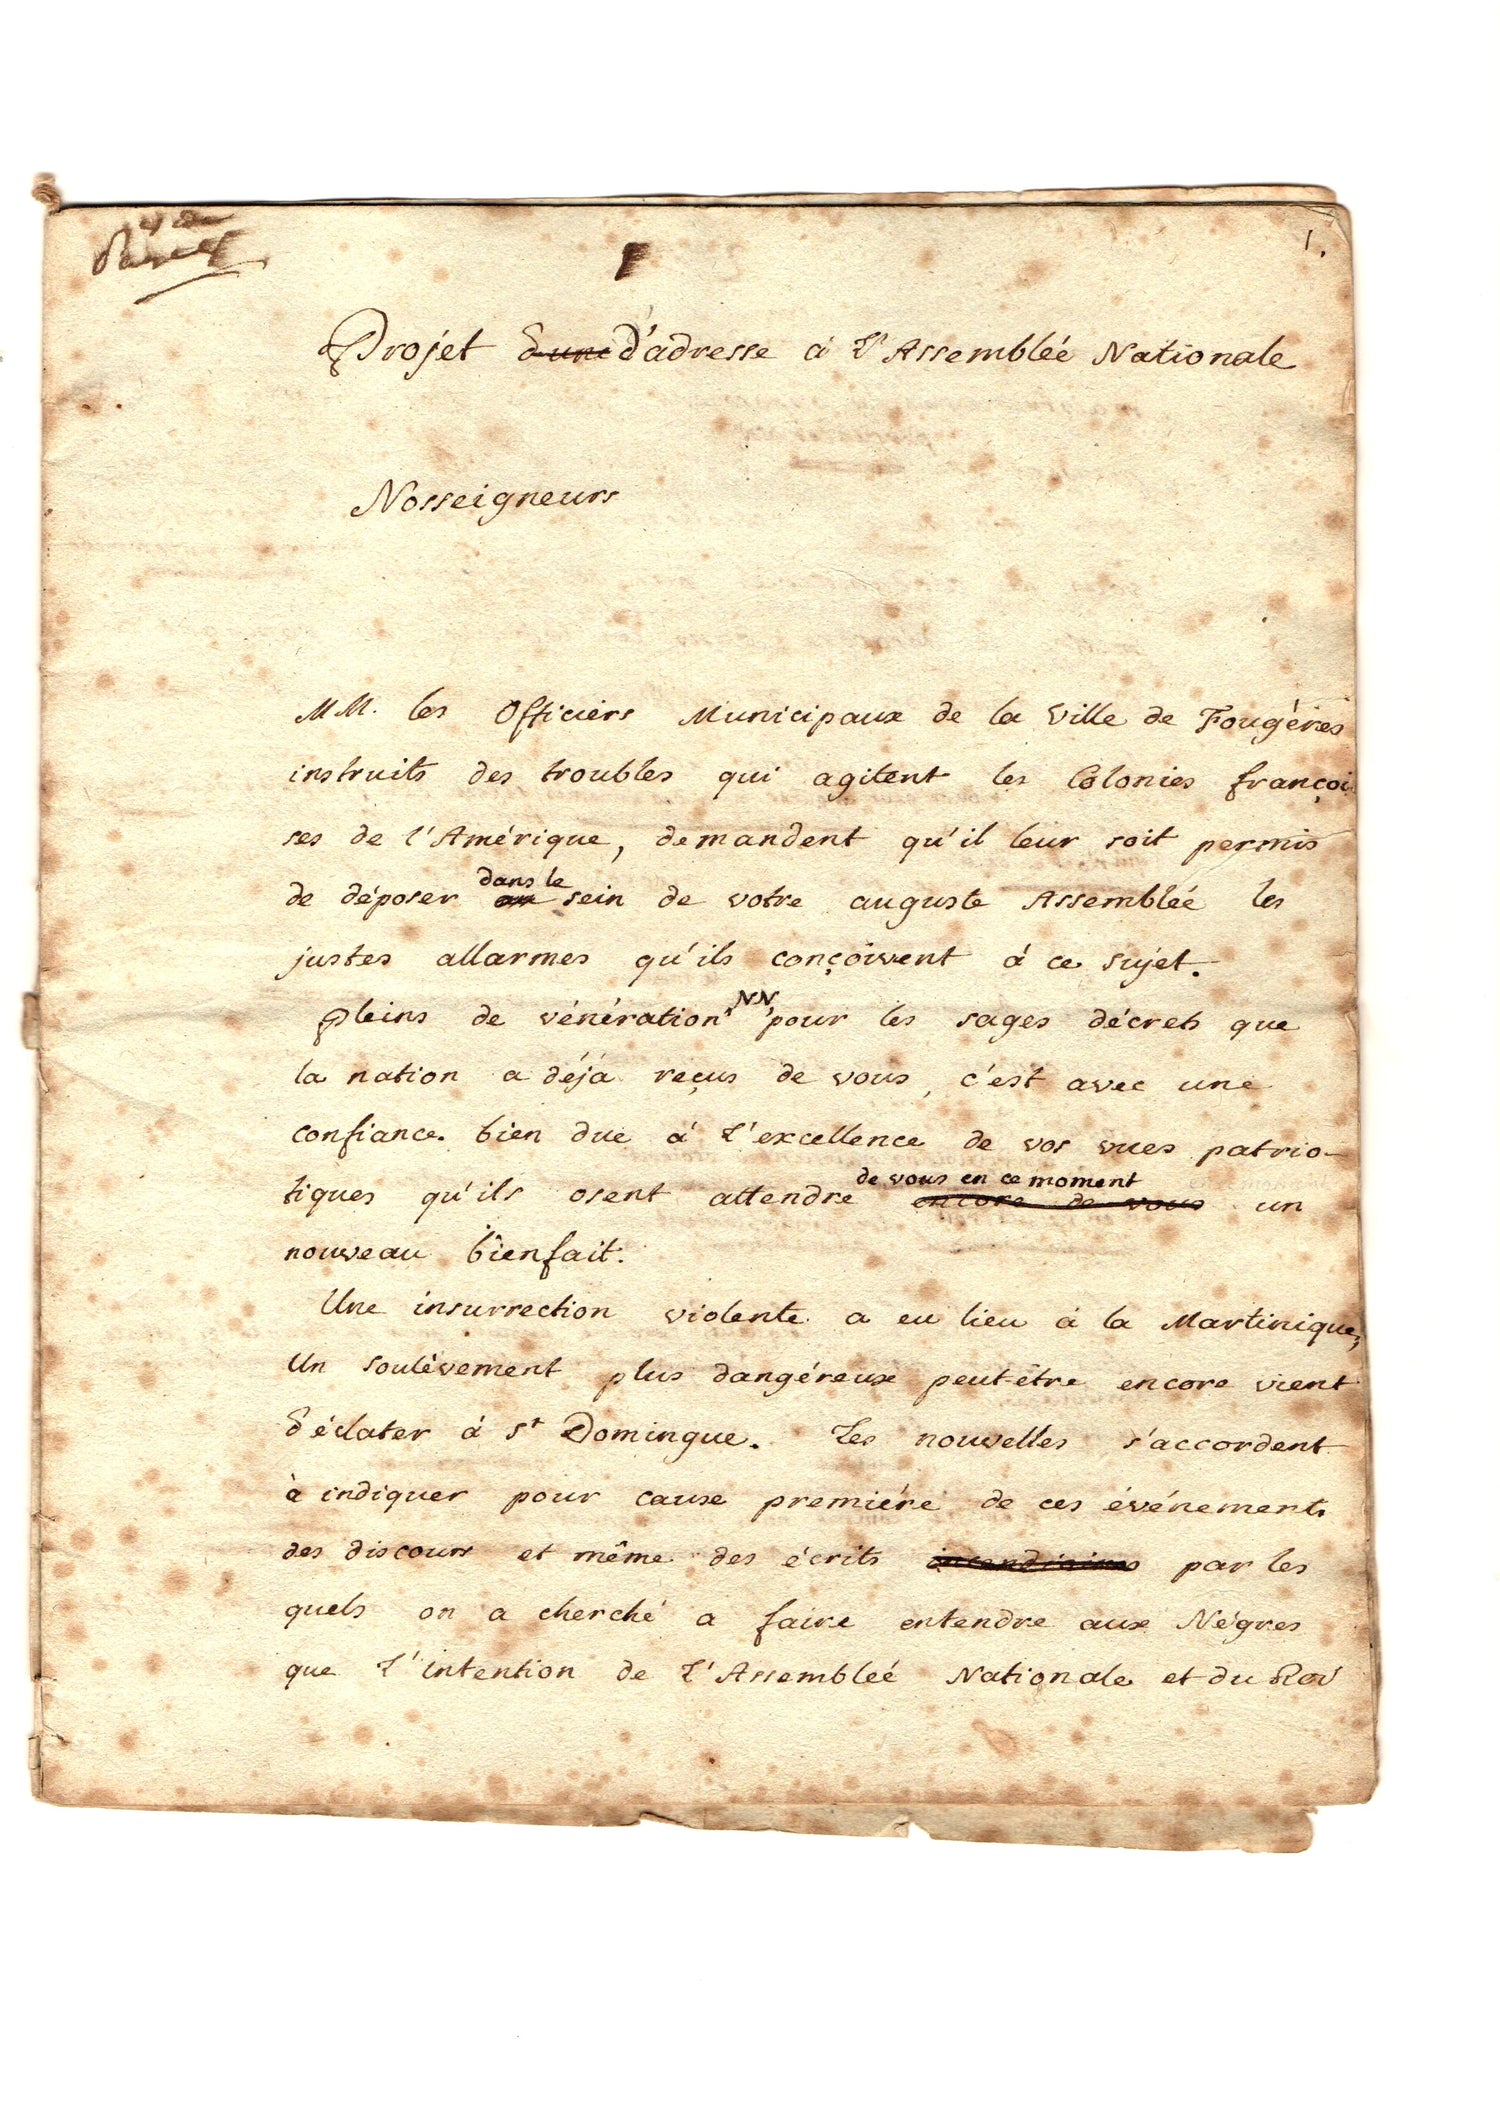 1.
Projet d'une d'adresse à l'Assembleé Nationale
Nosseigneurs
MM. les Officiers Municipaux de la Ville de Fougères
instruits des troubles qui agitent les Colonies françoi
ses de l'Amérique, demandent qu'il leur soit permis
dans le
de déposer au sein de votre auguste Assembleé les
justes allarmes qu'ils conçoivent à ce sujet.
NN
pleins de vénération pour les sages décrets que
la nation a déjà reçus de vous, c'est avec une
confiance bien due à l'excellence de vos vues patrio-
de vous en ce moment
tiques qu'ils osent attendre encore de vous un
nouveau bienfait.
Une insurrection violente a eu lieu à la Martinique,
Un soulèvement plus dangéreux peut-être encore vient
d'éclater à St Domingue. Les nouvelles s'accordent
à indiquer pour cause premiére de ces événements
des discours et même des écrits incendiaires par les
quels on a cherché a faire entendre aux Négres
que l'intention de l'Assembleé Nationale et du Roi